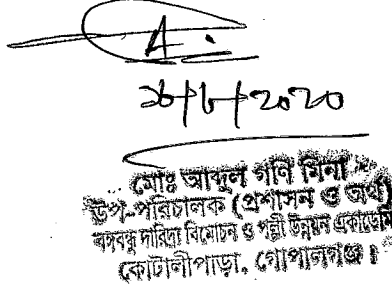 ২৮/৬/২০২০
মোঃ আব্দুল গণি মিনা
উপ-পরিচালক (প্রশাসন ও অর্থ)
বঙ্গবন্ধু দারিদ্র্য বিমোচন ও পল্লী উন্নয়ন একাডেমি
কোটালীপাড়া, গোপালগঞ্জ।